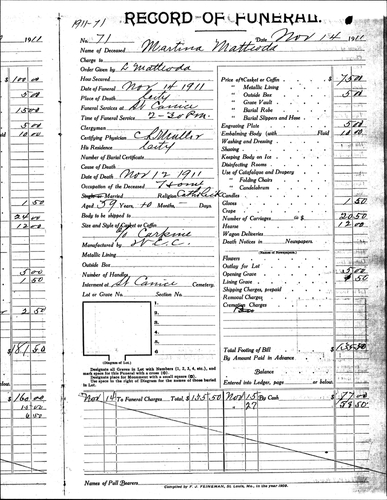 1911-71
RECORD OF FUNERAL.
No. 71 Date Nov 14 1911
Name of Deceased Martina Mattioda
Charge to
Order Given by L Mattioda
How Secured
Date of Funeral Nov 14 1911
Place of Death City
Funeral Services at St Canice
Time of Funeral Service 2-30 P.M.
Clergyman
Certifying Physician C L Muller
His Residence City
Number of Burial Certificate
Cause of Death
Date of Death Nov 12 1911
Occupation of the Deceased Home
Single or Married Religion Catholick
Aged 39 Years, Months, Days.
Body to be shipped to
Size and Style of Casket or Coffin
Manufactured by W.E.C.
Metallic Lining
Outside Box
Number of Handles
Interment at St Canice Cemetery.
Lot or Grave No. Section No.
1.
2.
3.
4.
5.
6.
(Diagram of Lot.)
Designate all Graves in Lot with Numbers (1, 2, 3, 4, etc.), and
mark space for this Funeral with a cross (X).
Designate place for Monument with a small square
Use space to right of Diagram for names of those buried
in Lot.
Price of Casket or Coffin $ 75 00
" Metallic Lining
" Outside Box 5 00
" Grave Vault
" Burial Robe
" Burial Slippers and Hose
Engraving Plate 5 00
Embalming Body (with Fluid 10 00
Washing and Dressing
Shaving
Keeping Body on Ice
Disinfecting Rooms
Use of Catafalque and Drapery
" Folding Chairs
" Candelabrum
Candles
Gloves 1 50
Crape
Number of Carriages 20 50
Hearse 12 00
Wagon Deliveries
Death Notices in Newspapers.
(Names of Newspapers)
Flowers
Outlay for Lot
Opening Grave 5 00
Lining Grave 1 50
Shipping Charges, prepaid
Removal Charges
Cremation Charges
Total Footing of Bill 135 50
By Amount Paid in Advance
Balance
Entered into Ledger, page or below.
Nov 14 To Funeral Charges Total, $ 135.50 Nov 15 By Cash $ 77 00
" 27 58 50
Names of Pall Bearers.
Compiled by F. J. FEINEMAN, St. Louis, Mo., in the year 1908.